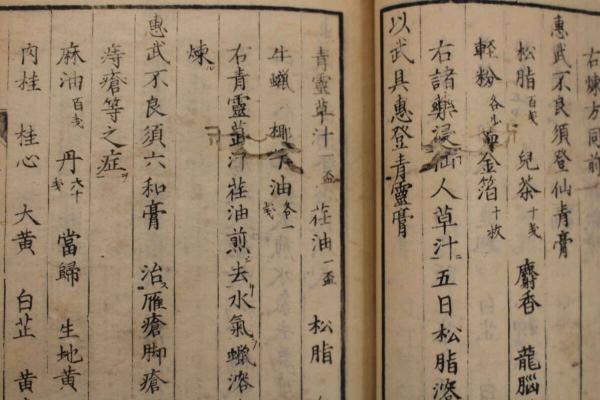 右煉方同前
惠武不良須登仙青膏
松脂百戔 兒茶十戔 麝香 龍腦
輕粉各少 金箔十枚
右諸藥浸仙人草汁五日松脂溶
以武具惠登青靈膏
青靈草汁一盃 荏油一盃 松脂
牛蠟 椰子油各一戔
右青靈草汁荏油煎去水氣蠟溶
煉
惠武不良須六和膏 治雁瘡脚瘡
痔瘡等之症
麻油百戔 丹六十戔 當歸 生地黄
肉桂 桂心 大黄 白芷 黄